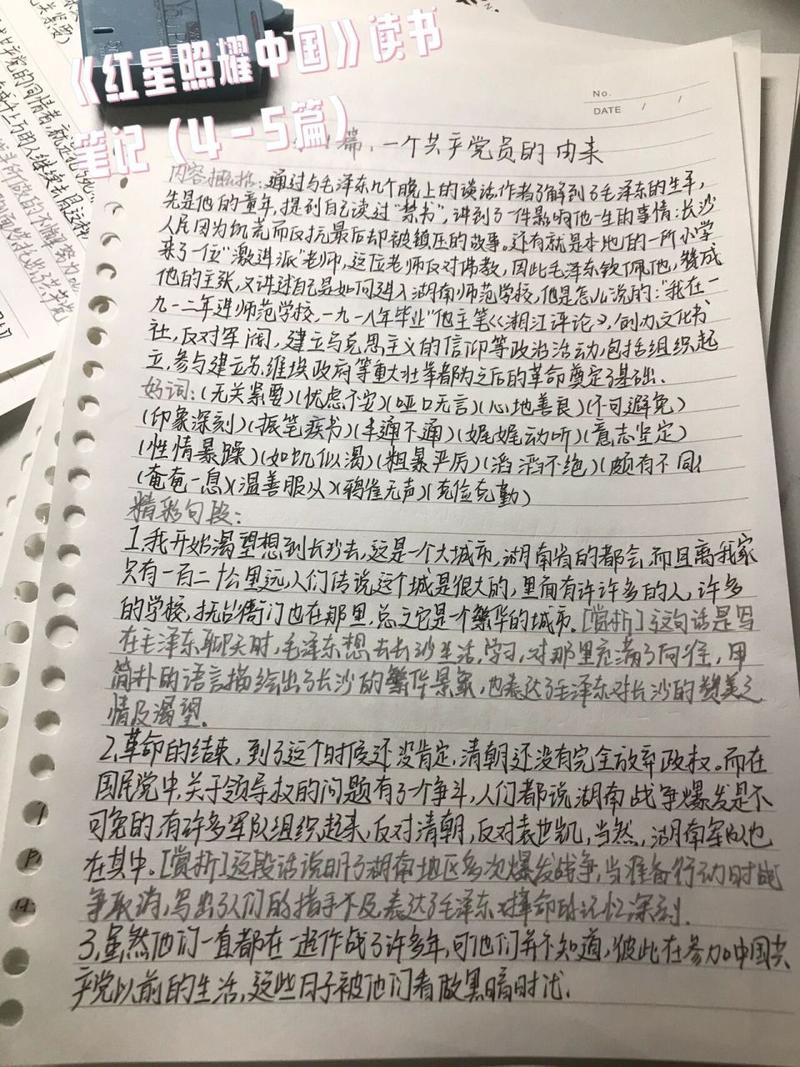 《红星照耀中国》读书
笔记（4-5篇）
No.
DATE / /
篇、一个共产党员的由来
内容概括：通过与毛泽东几个晚上的谈话，作者了解到了毛泽东的生平，
先是他的童年，提到自己读过“禁书”，讲到了一件影响他一生的事情：长沙
人民因为饥荒而反抗最后却被镇压的故事。还有就是本地的一所小学
来了一位“激进派”老师，这位老师反对佛教，因此毛泽东钦佩他，赞成
他的主张，又讲过自己是如何进入湖南师范学校，他是怎么说的：“我在一
九一二年进师范学校，一九一八年毕业”他主笔《湘江评论》，创办文化书
社，反对军阀，建立马克思主义的信仰等政治活动，包括组织起
立，参与建立苏维埃政府等重大壮举都为之后的革命奠定了基础．
好词：(无关紧要)(忧虑不安)(哑口无言)(心地善良)(不可避免)
(印象深刻)(振笔疾书)(半通不通)(娓娓动听)(意志坚定)
(性情暴躁)(如饥似渴)(粗暴严厉)(滔滔不绝)(颇有不同)
(奄奄一息)(温善服从)(鸦雀无声)(克俭克勤)
精彩句段：
1.我开始渴望想到长沙去，这是一个大城市，湖南省的都会，而且离我家
只有一百二十公里远，人们传说这个城是很大的，里面有许许多多的人，许多
的学校，抚台衙门也在那里，总之它是个繁华的城市．[赏析]这句话是写
在毛泽东聊天时，毛泽东想去长沙生活，学习，对那里充满了向往，用
简朴的语言描绘出了长沙的繁华景象，也表达了毛泽东对长沙的赞美之
情及渴望．
2.革命的结束，到了这个时候还没肯定，清朝还没有完全放弃政权。而在
国民党中，关于领导权的问题有了个争斗，人们都说湖南战争爆发是不
可免的，有许多军队组织起来，反对清朝，反对袁世凯，当然，湖南军队也
在其中。[赏析]这段话说明了湖南地区多次爆发战争，当准备行动时战
争取消，写出了人们的措手不及，表达了毛泽东对革命的记忆深刻．
3.虽然他们一直都在一起作战了许多年，可他们并不知道，彼此在参加中国共
产党以前的生活，这些日子被他们看做黑暗时代．